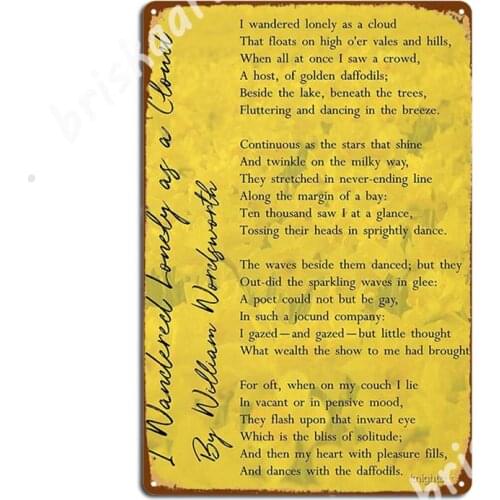 I Wandered Lonely as a Cloud
By William Wordsworth
I wandered lonely as a cloud
That floats on high o'er vales and hills,
When all at once I saw a crowd,
A host, of golden daffodils;
Beside the lake, beneath the trees,
Fluttering and dancing in the breeze.
Continuous as the stars that shine
And twinkle on the milky way,
They stretched in never-ending line
Along the margin of a bay:
Ten thousand saw I at a glance,
Tossing their heads in sprightly dance.
The waves beside them danced; but they
Out-did the sparkling waves in glee:
A poet could not but be gay,
In such a jocund company:
I gazed—and gazed—but little thought
What wealth the show to me had brought
For oft, when on my couch I lie
In vacant or in pensive mood,
They flash upon that inward eye
Which is the bliss of solitude;
And then my heart with pleasure fills,
And dances with the daffodils.